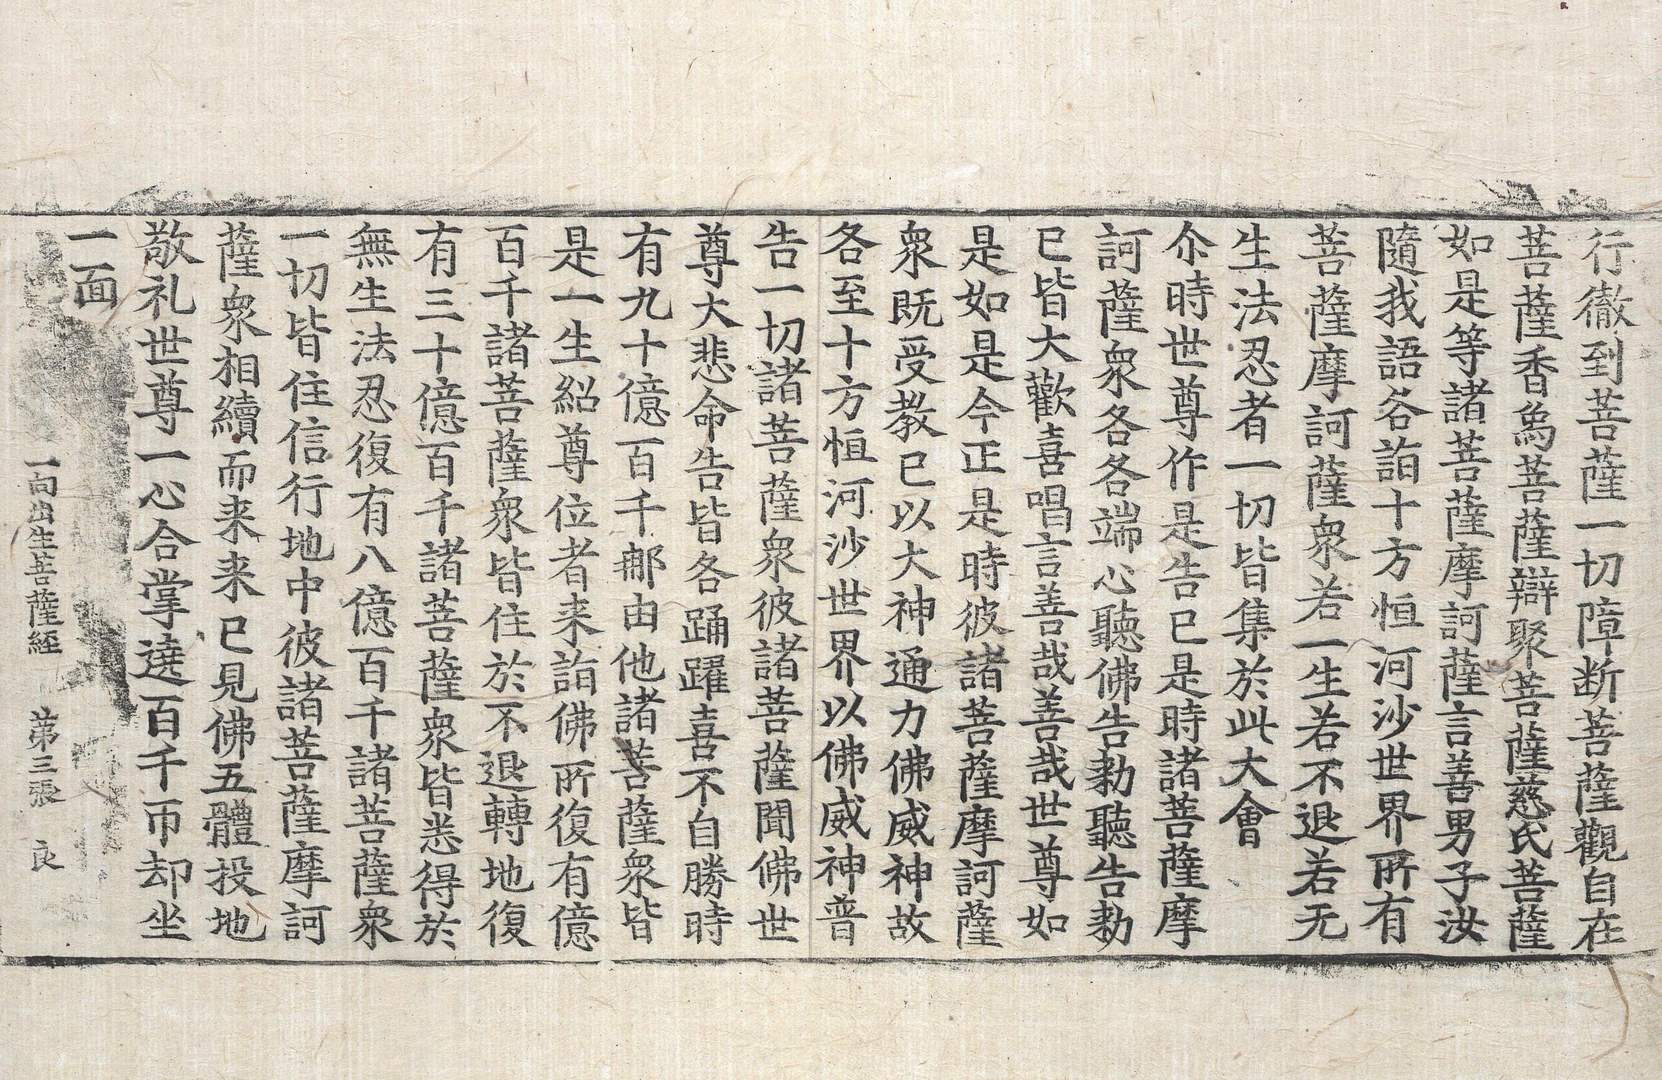 行徹到菩薩一切障断菩薩觀自在
菩薩香烏菩薩辯聚菩薩慈氏菩薩
如是等諸菩薩摩訶薩言善男子汝
隨我語各詣十方恒河沙世界所有
菩薩摩訶薩衆若一生若不退若无
生法忍者一切皆集於此大會
尒時世尊作是告已是時諸菩薩摩
訶薩衆各各端心聽佛告勑聽告勑
已皆大歡喜唱言善哉善哉世尊如
是如是今正是時彼諸菩薩摩訶薩
衆既受教已以大神通力佛威神故
各至十方恒河沙世界以佛威神普
告一切諸菩薩衆彼諸菩薩聞佛世
尊大悲命告皆各踊躍喜不自勝時
有九十億百千那由他諸菩薩衆皆
是一生紹尊位者来詣佛所復有億
百千諸菩薩衆皆住於不退轉地復
有三十億百千諸菩薩衆皆悉得於
無生法忍復有八億百千諸菩薩衆
一切皆住信行地中彼諸菩薩摩訶
薩衆相續而来来已見佛五體投地
敬礼世尊一心合掌遶百千帀却坐
一面
一向出生菩薩経 第三張 良